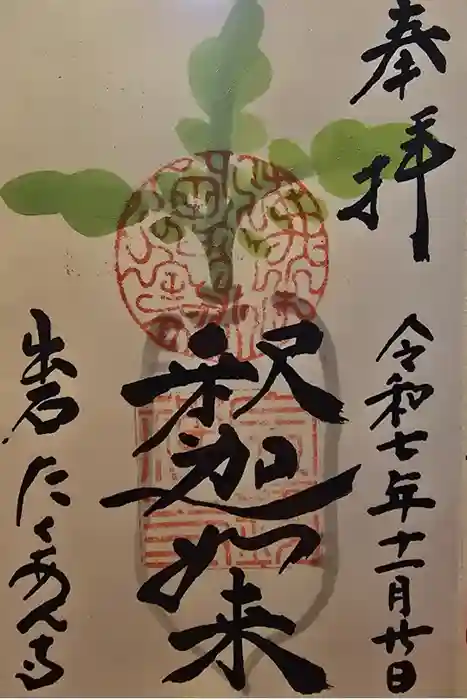 奉拝
令和七年十一月廿日
釈迦如来
出石
たくあん寺